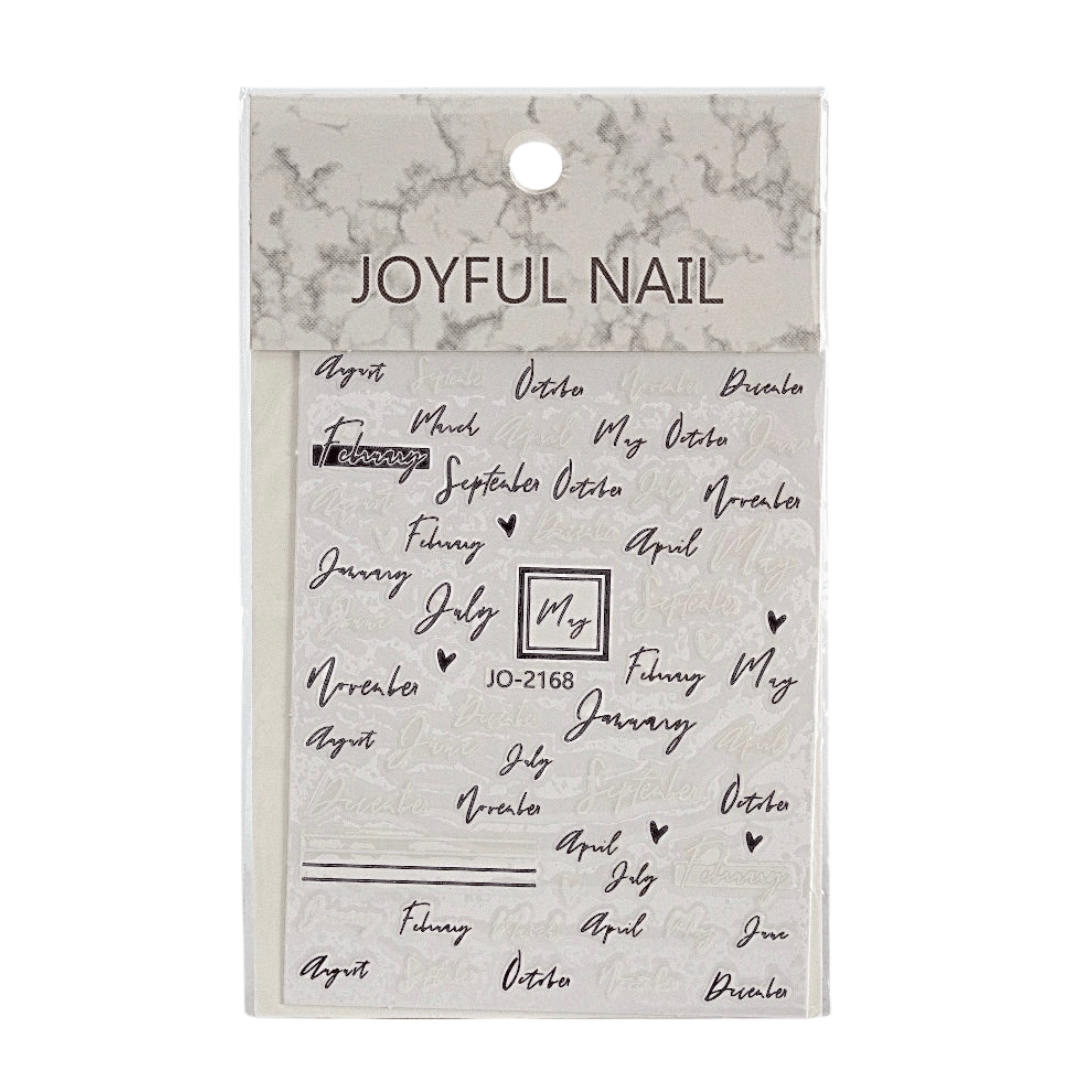 JOYFUL NAIL
August Septembe October November December
March April May October June
February
September October July November
August
February December April May
January
July May Septembe
June
November JO-2168 February May
December January
August June July April
Decembe November Septembe October
April
July February
January February March April May June
August September October November December